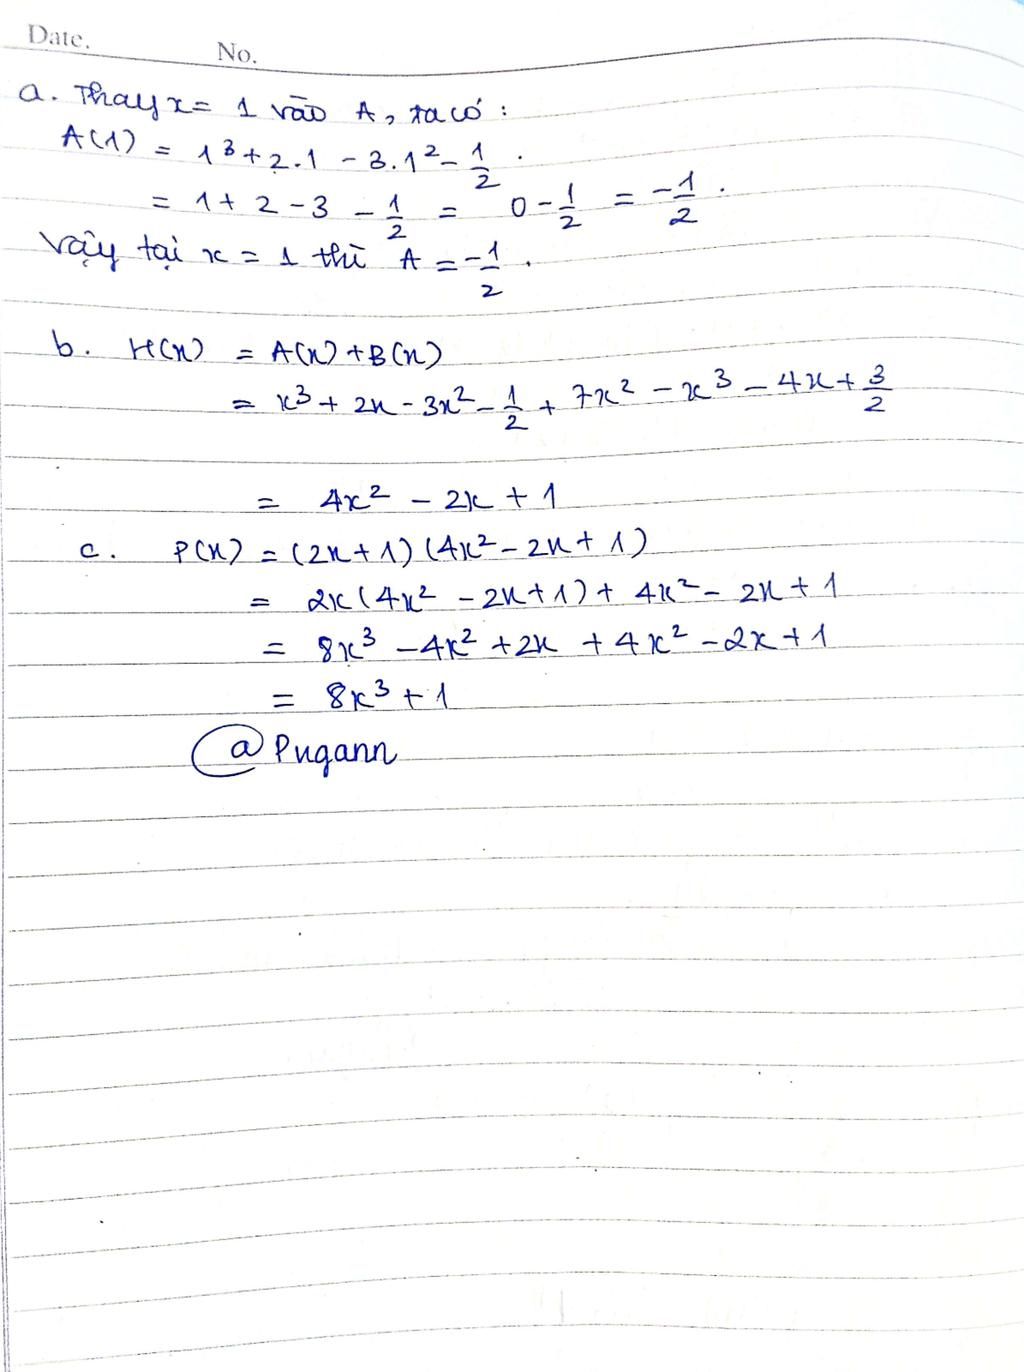 Date.
No.
a. Thay x = 1 vào A, ta có :
A(1) = 1³ + 2.1 - 3.1² - 1/2 .
= 1 + 2 - 3 - 1/2 = 0 - 1/2 = -1/2 .
Vậy tại x = 1 thì A = -1/2 .
b. H(x) = A(x) + B(x)
= x³ + 2x - 3x² - 1/2 + 7x² - x³ - 4x + 3/2
= 4x² - 2x + 1
c. P(x) = (2x + 1) (4x² - 2x + 1)
= 2x (4x² - 2x + 1) + 4x² - 2x + 1
= 8x³ - 4x² + 2x + 4x² - 2x + 1
= 8x³ + 1
@Pugann